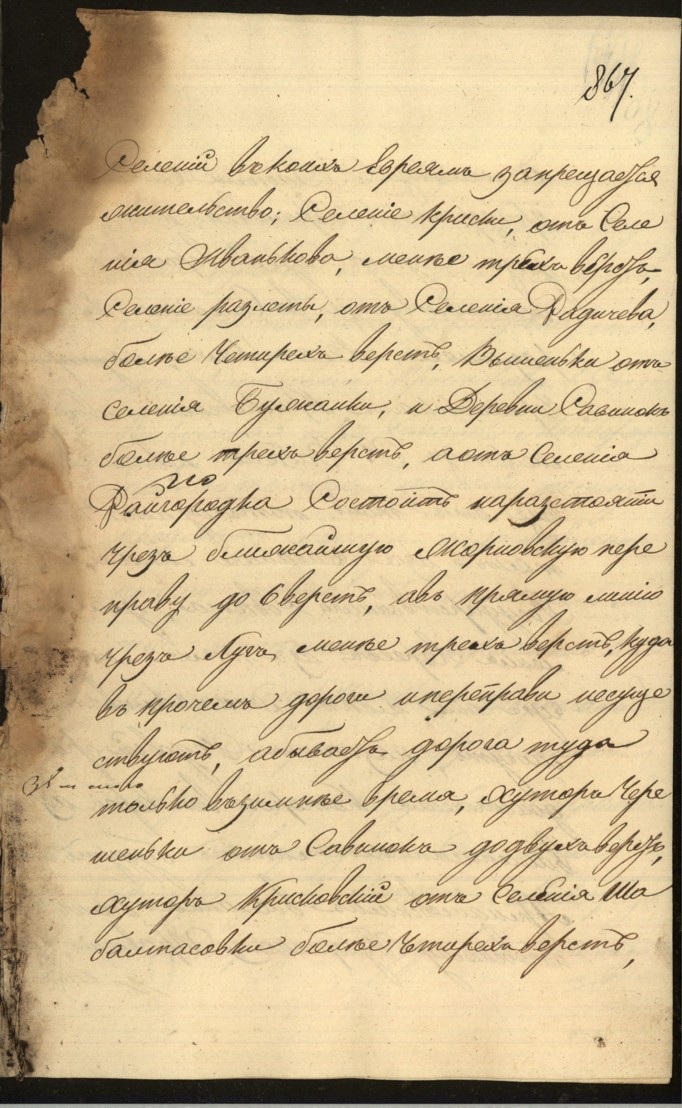 867.
Селеній въ коихъ Евреямъ запрещается
жительство; Селеніе Криски, отъ Селе
нія Иванькова, менѣе трехъ верстъ,
Селеніе разлеты, отъ Селенія Радичева,
болѣе Четирехъ верстъ, Вишеньки отъ
селенія Бужанки, и Деревни Савинокъ
болѣе трехъ верстъ, а отъ Селенія
Райгородка Состоитъ на разстояніи
по
Чрезъ ближайшую пере
праву до 6 верстъ, а въ прямую линію
чрезъ Лугъ менѣе трехъ верстъ, куда
въ прочемъ дороги и переправи несуще
ствуютъ, а бываетъ дорога туда
только въ зимнѣе время, Хуторъ Чере
шеньки отъ Савинокъ до двухъ верстъ,
Хуторъ Крисковскій отъ Селенія Ша
балтасовки болѣе Четирехъ верстъ,